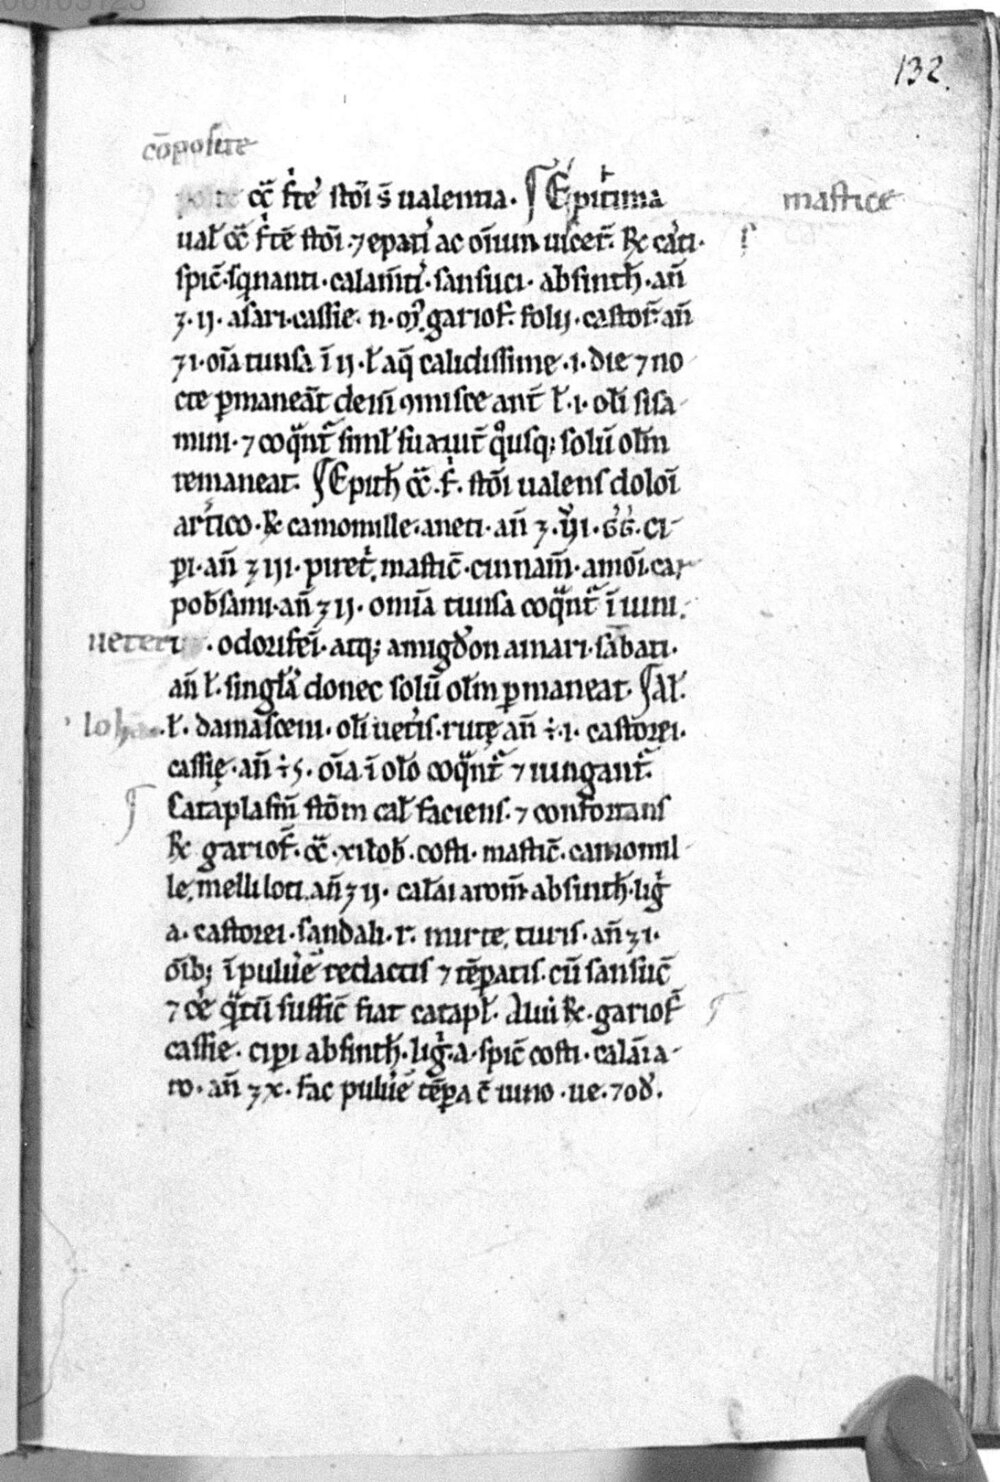 132.
co̅posite
cc̅ fr̅te sto̅i s̅ ualentia. Epitima
mastice
ual̅ cc̅ fr̅te̅ sto̅i. ⁊ epati' ac oi̅um uiscer̅. R͛ cati.
spic̅. sq̅nanti. calam̅ti. sansuci. absinth̅. an̅
ʒ. ij. asari. cassie. n. gariof̅. folij. castor̅. an̅
ʒ i. oi̅a tunsa i̅ ij. l̅ aq̅ calidissime. i. die ⁊ no
cte p̅manea̅t dein̅ ꝯmisce ant̅ l̅. i. ol̅i sisa
mini. ⁊ coq̅nt̅ siml̅ suauit̅ q̊usq; solu̅ ol̅m
remaneat. Epith̅ cc̅. f̅. sto̅i ualens doloi̅
artico. R͛ camomille. aneti. an̅ ʒ. ci
pi. an̅ ʒ iij. piret̅. mastic̅. cinnam̅. amoi̅. car
pobsami. an̅ ʒ ij. omi̅a tunsa coq̅nt̅ i̅ uini.
ueteri . odorifei̅. atq; amigd̅on amari. sa̅bati.
an̅ l̅. singl̅a donec solu̅ ol̅m p̅maneat. Al̅.
l̅. damasceni. ol̅i uet̅is. rutę an̅ ÷. i. castorei.
cassię. an̅ ÷ s. oi̅a i̅ ol̅o coq̅nt̅ ⁊ iungant̅.
Cataplasm̅ sto̅m cal̅ faciens. ⁊ confortans
R͛ gariof̅. cc̅. xilob̅. costi. mastic̅. camomil
le. melliloti. an̅ ʒ ij. cal̅ai arom̅ absinth̅. lig̅
a. castorei. sandali. r. mirte. turis. an̅ ʒ i.
oi̅b; i̅ pulue̅ redactis ⁊ te̅patis. cu̅ sansuc̅
⁊ ce̅ q̅tu̅ suffic̅ fiat catapl̅. Aliu̅ R͛. gariof̅
cassie. cipi absinth̅. lig̅. a. spic̅ costi. cala̅i a
ro. an̅ ʒ x. fac pulue̅ te̅pa c̅ uino. ue. ⁊ od̅.